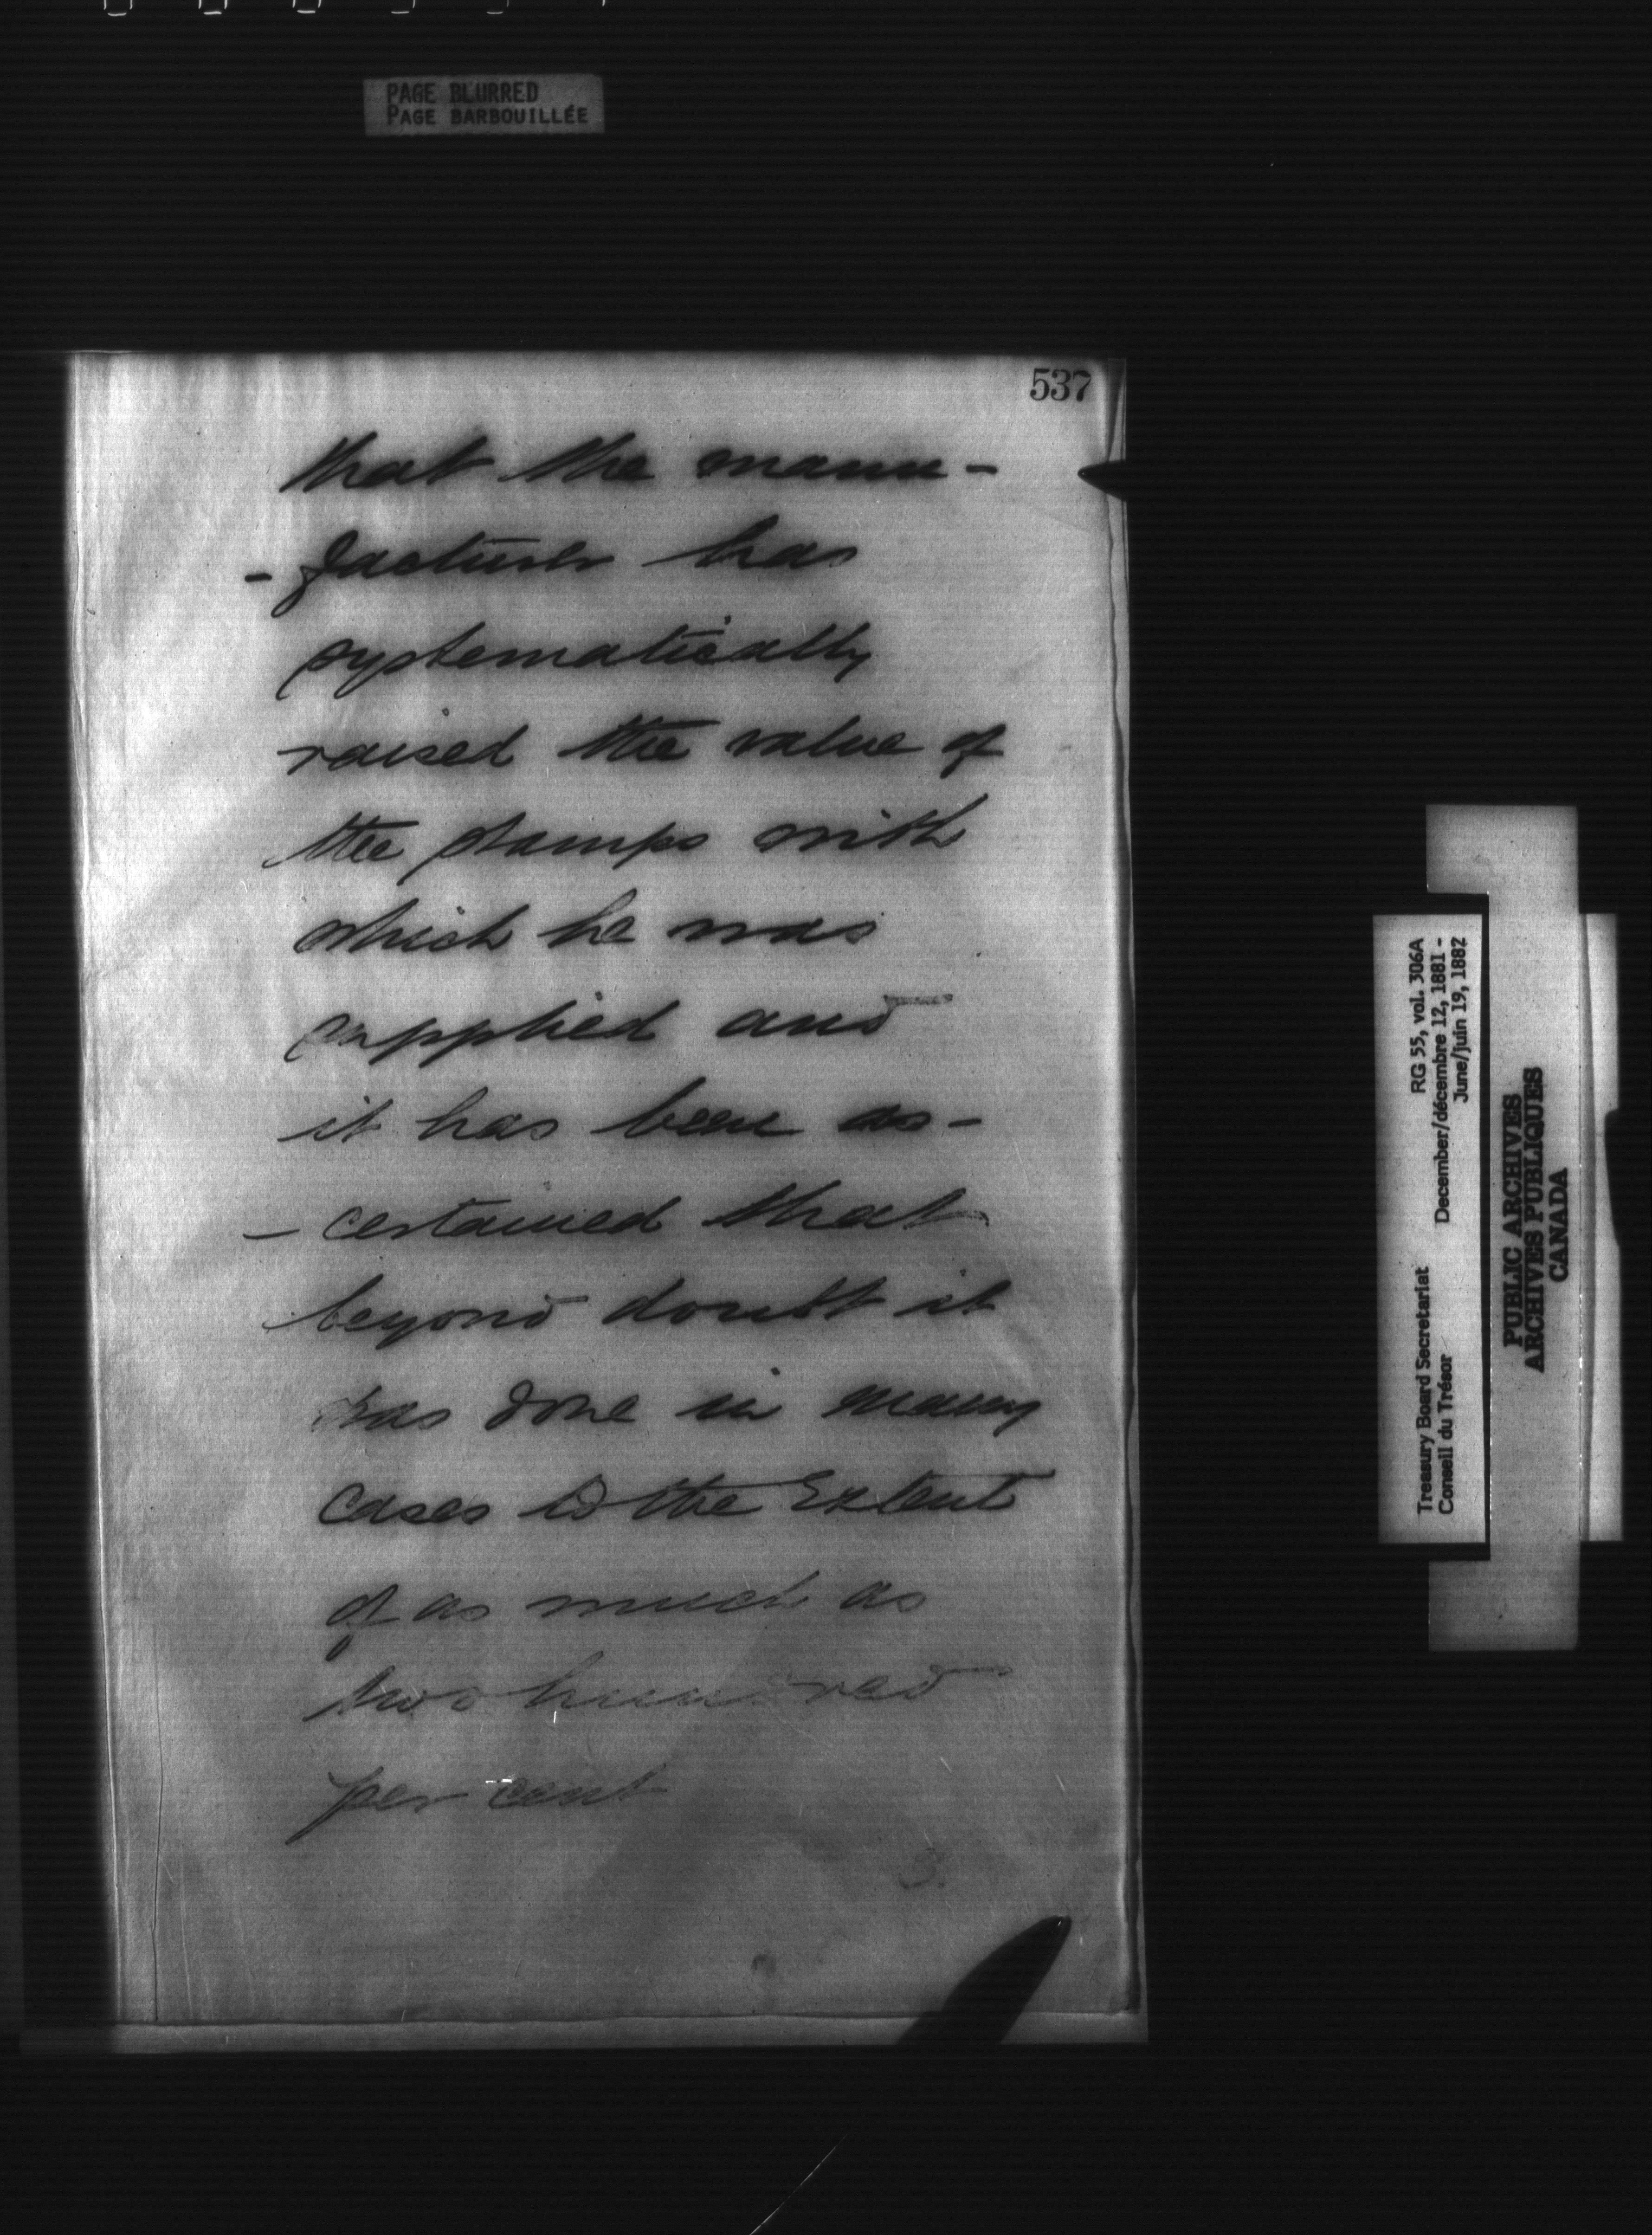 PAGE BLURRED
PAGE BARBOUILLÉE
537
that the manu-
-facturer has
systematically
raised the value of
the stamps with
which he was
supplied and
it has been as-
-certained that
beyond doubt it
was done in many
cases to the Extent
of as much as
two hundred
per cent
3.
Treasury Board Secretariat RG 55, vol. 306A
Conseil du Trésor December/décembre 12, 1881 -
June/juin 19, 1882
PUBLIC ARCHIVES
ARCHIVES PUBLIQUES
CANADA